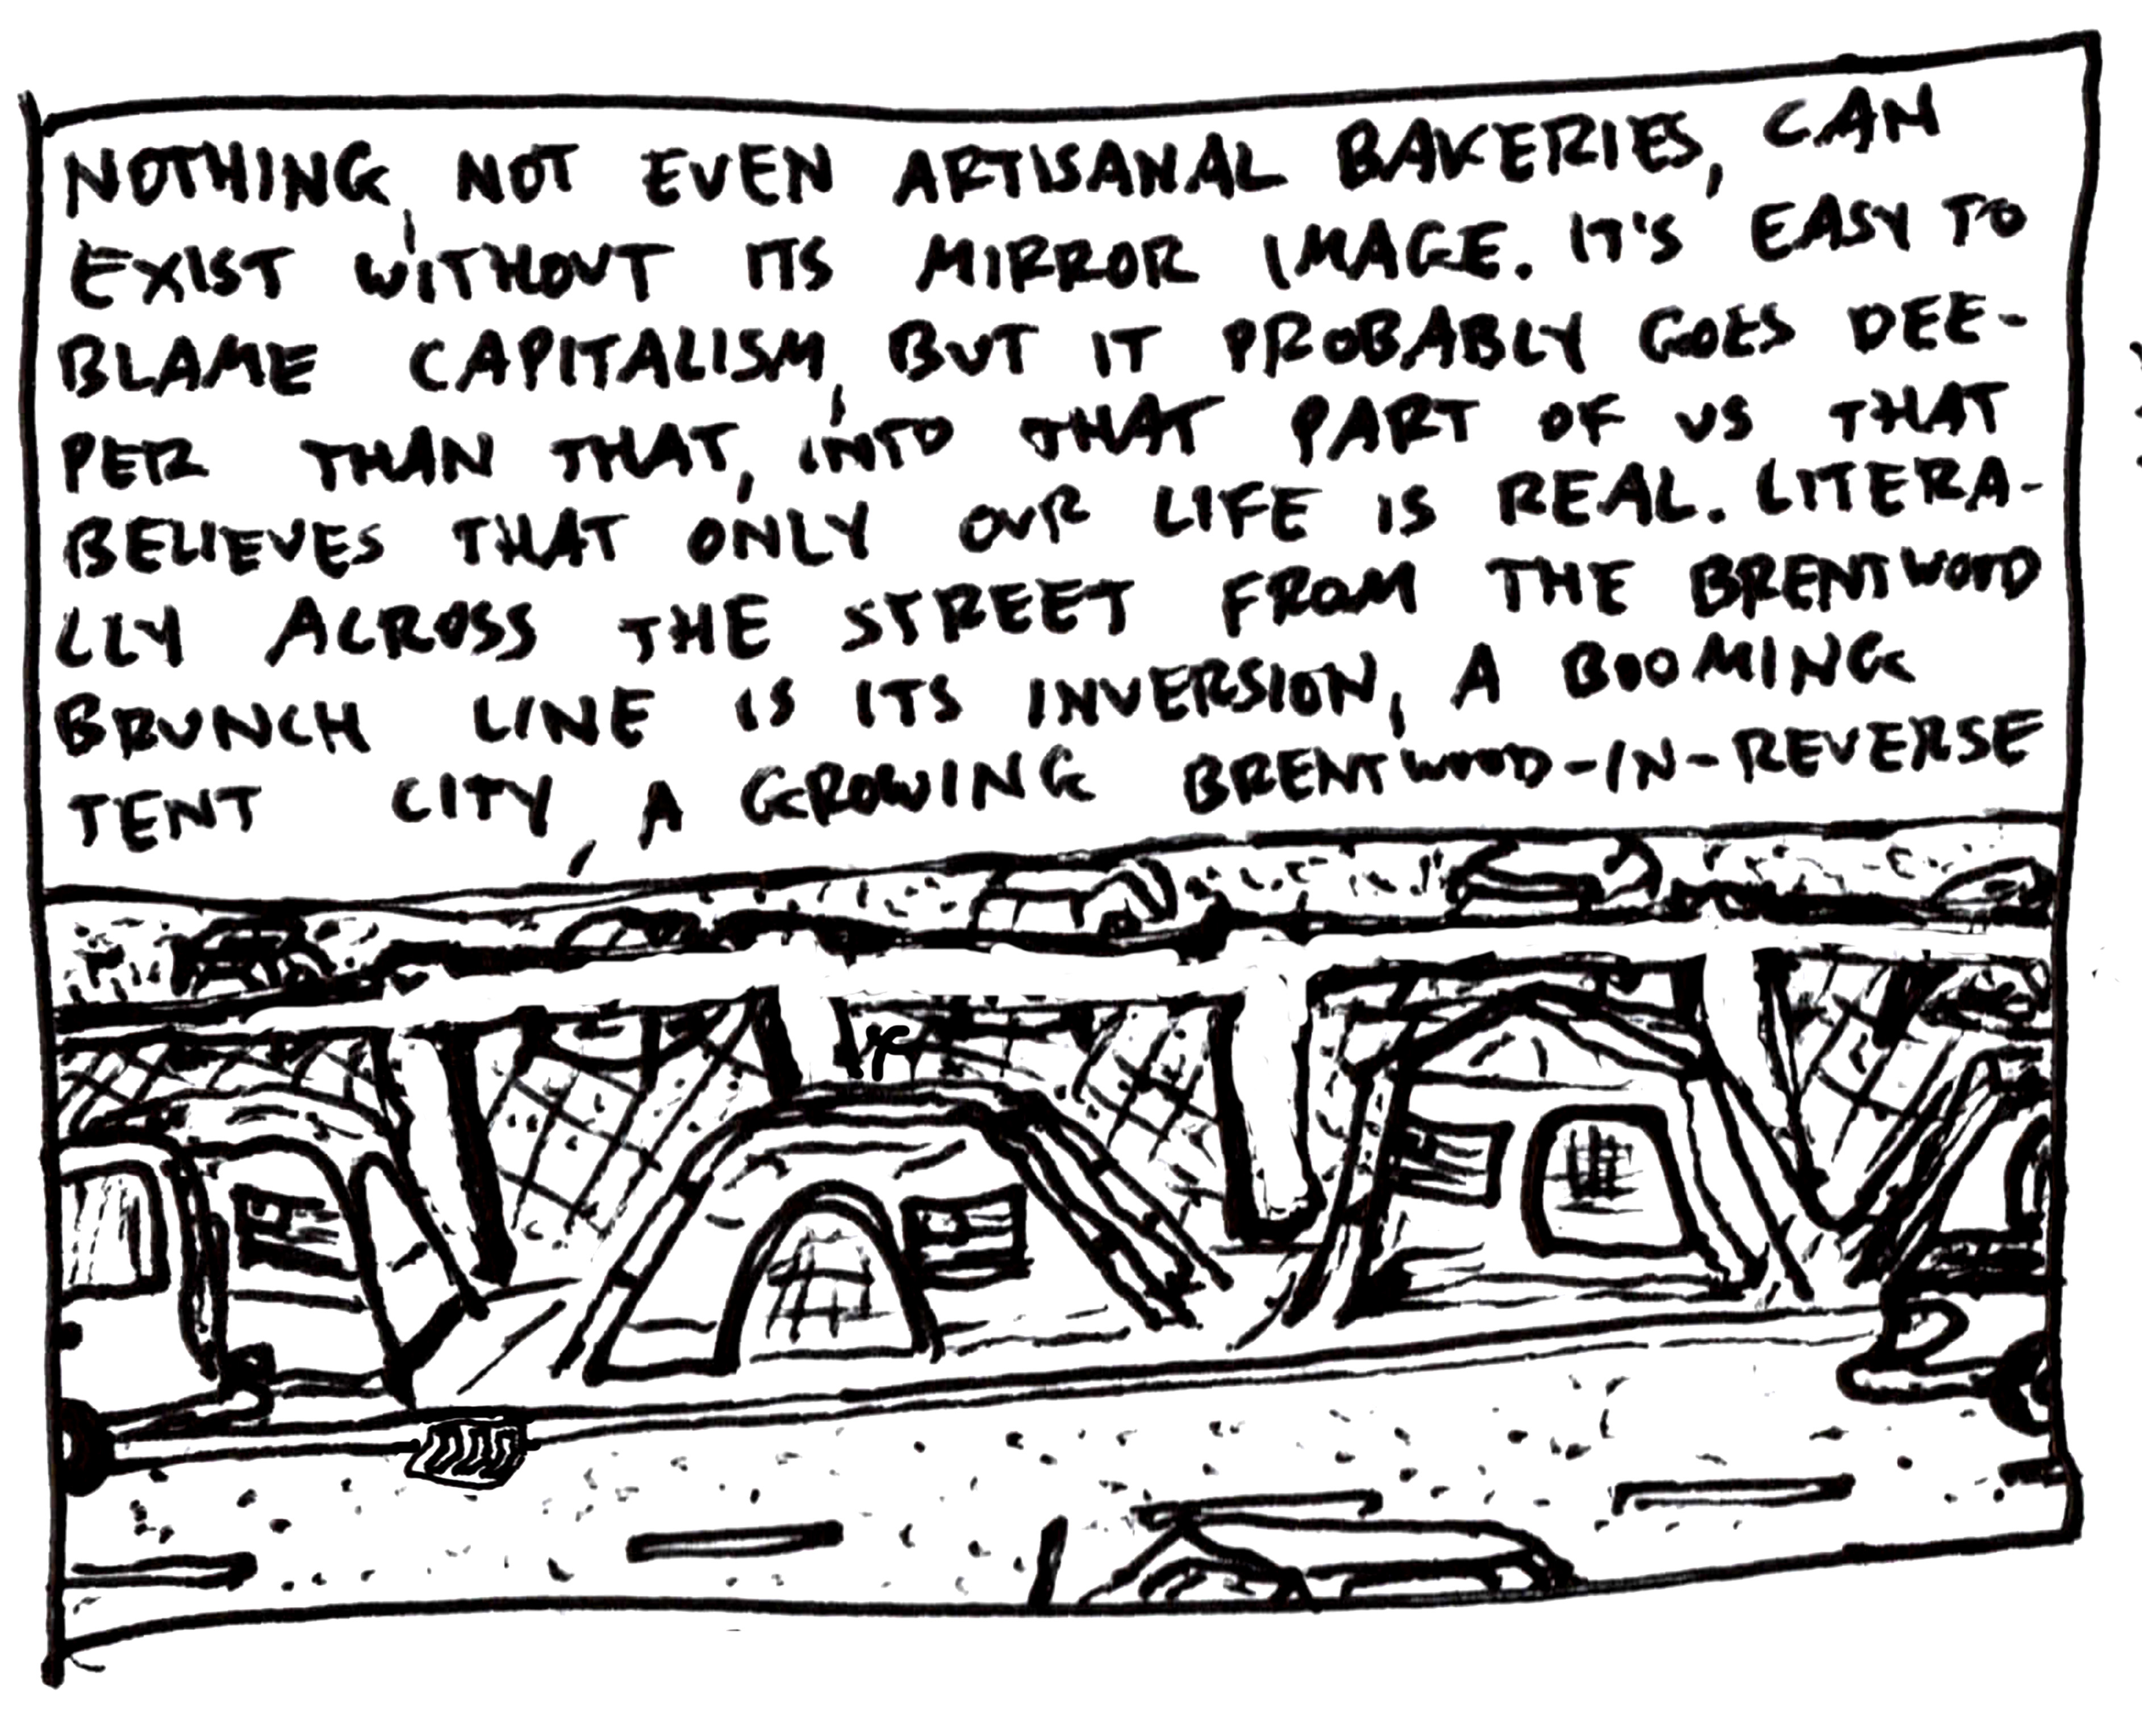 NOTHING, NOT EVEN ARTISANAL BAKERIES, CAN
EXIST WITHOUT ITS MIRROR IMAGE. IT'S EASY TO
BLAME CAPITALISM, BUT IT PROBABLY GOES DEE-
PER THAN THAT, INTO THAT PART OF US THAT
BELIEVES THAT ONLY OUR LIFE IS REAL. LITERA-
LLY ACROSS THE STREET FROM THE BRENTWOOD
BRUNCH LINE IS ITS INVERSION, A BOOMING
TENT CITY, A GROWING BRENTWOOD-IN-REVERSE